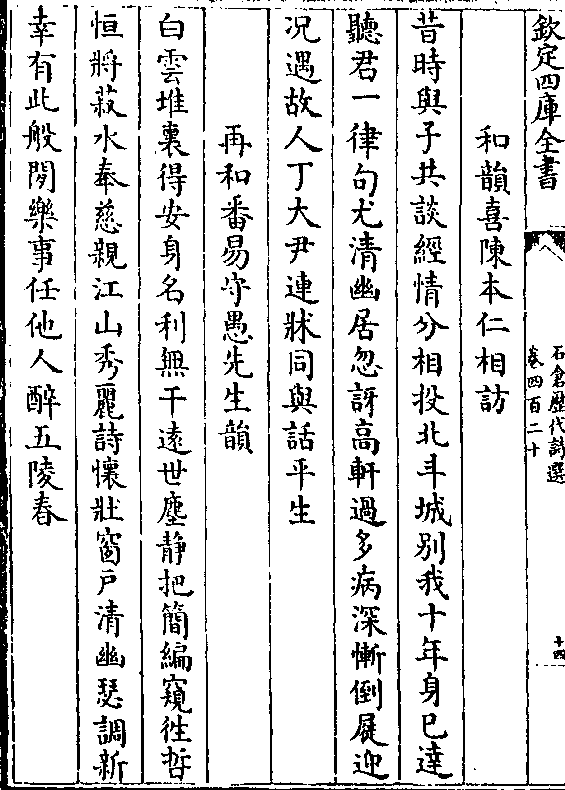 欽定四庫全書
石倉歴代詩選
卷四百二十
十四
和韻喜陳本仁相訪
昔時與子共談經情分相投北斗城别我十年身已達
聽君一律句尤清幽居忽訝高軒過多病深慚倒屣迎
况遇故人丁大尹連牀同與話平生
再和番昜守愚先生韻
白雲堆裏得安身名利無干逺世塵静把簡編窺徃哲
恒將菽水奉慈親江山秀麗詩懷壯窗戸清幽瑟調新
幸有此般閒樂事任他人醉五陵春